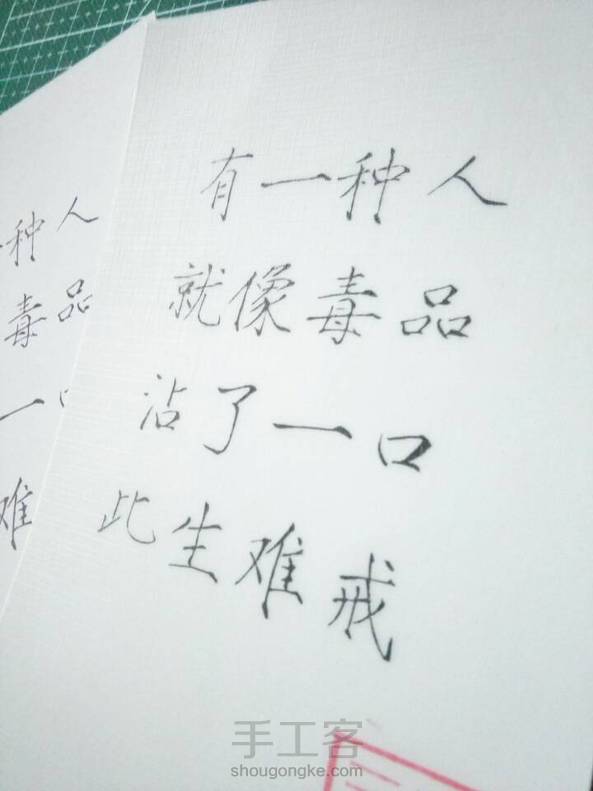 有一种人
就像毒品
沾了一口
此生难戒
种人
毒品
一口
难
手工客
shougongke.com